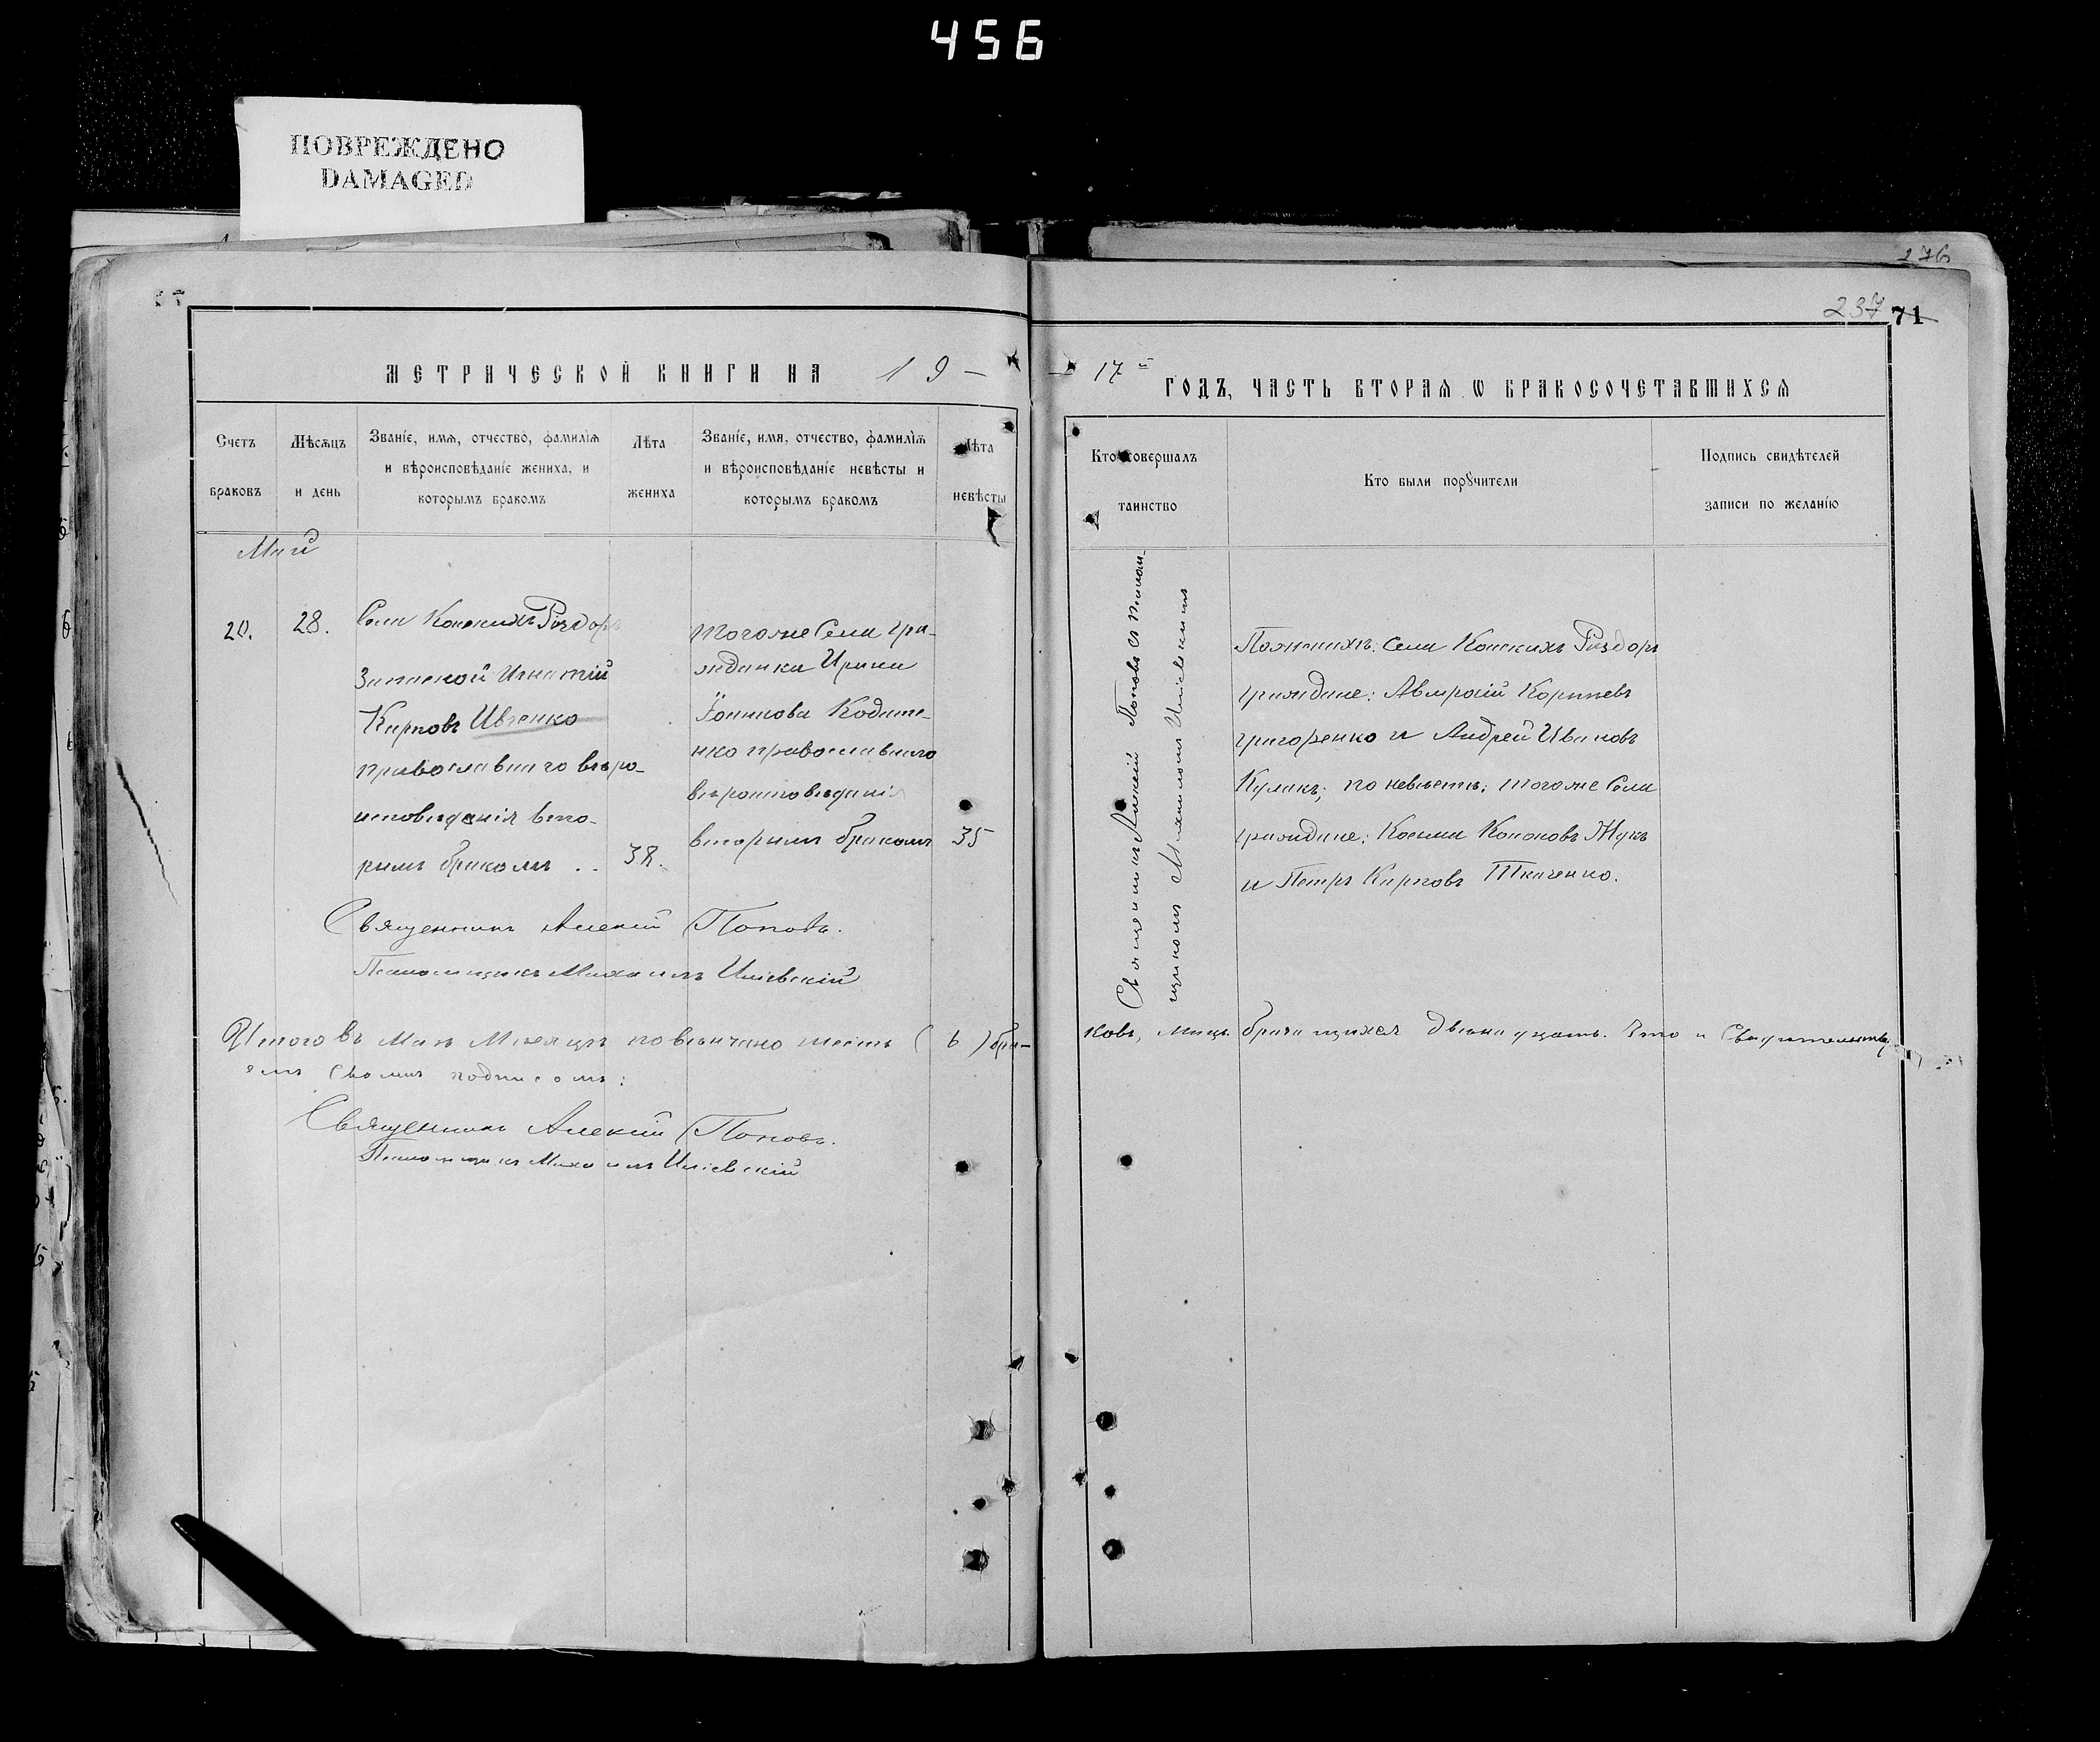 456
ПОВРЕЖДЕНО
DAMAGED
276
237 71
МЕТРИЧЕСКОЙ КНИГИ НА 19 —
— 17 ГОДЪ, ЧАСТЬ ВТОРАЯ Ѡ БРАКОСОЧЕТАВШИХСЯ
Счетъ
браковъ
Мѣсяцъ
и день
Званіе, имя, отчество, фамилія
и вѣроисповѣданіе жениха, и
которымъ бракомъ
Лѣта
жениха
Званіе, имя, отчество, фамилія
и вѣроисповѣданіе невѣсты и
которымъ бракомъ
Лѣта
невѣсты
Кто совершалъ
таинство
Кто были поручители
Подпись свидѣтелей
записи по желанію
Май
20.
28.
Села Конскихъ Раздоръ
Запасной Игнатій
Карповъ Ивченко
православнаго вѣро-
исповѣданія вто-
рымъ бракомъ . .
38.
тогоже Села гра-
жданка Ирина
Кодаце-
нко православнаго
вѣроисповѣданія
вторымъ бракомъ
35
Священникъ Алексій Поповъ съ псалом-
щикомъ Михаиломъ
Пожениха: Села Конскихъ Раздоръ
граждане: Амвросій
григоренко и Андрей Ивановъ
Кулакъ; по невѣстѣ: тогоже Села
граждане: Косьма Кононовъ Жукъ
и Петръ Карповъ Ткаченко.
Священникъ Алексій Поповъ.
Псаломщикъ Михаилъ
Итого въ Маѣ Мѣсяцѣ повѣнчано шесть (6) бра-
ковъ, лицъ брачащихся двѣнадцать. Что и Свидѣтельству-
емъ своимъ подписомъ:
Священникъ Алексій Поповъ.
Псаломщикъ Михаилъ